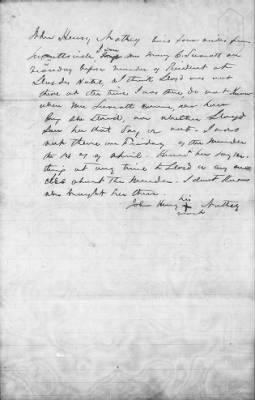 John Henry Nothey lives four miles from
Surrattsville I saw Mrs Mary E. Surratt on
Tuesday before murder of President at
Surratts Hotel, I think Lloyd was not
there at the time I was there do not know
when Mrs Surratt came, nor how
long she stayed, nor whether Lloyd
saw her that day, or not. I was
not there on Friday of the murder
the 14 of April. Never heard her say any
thing at any time to Lloyd or any one
else about the murder. I don't know
who brought her there.
his
John Henry + Nothey
mark